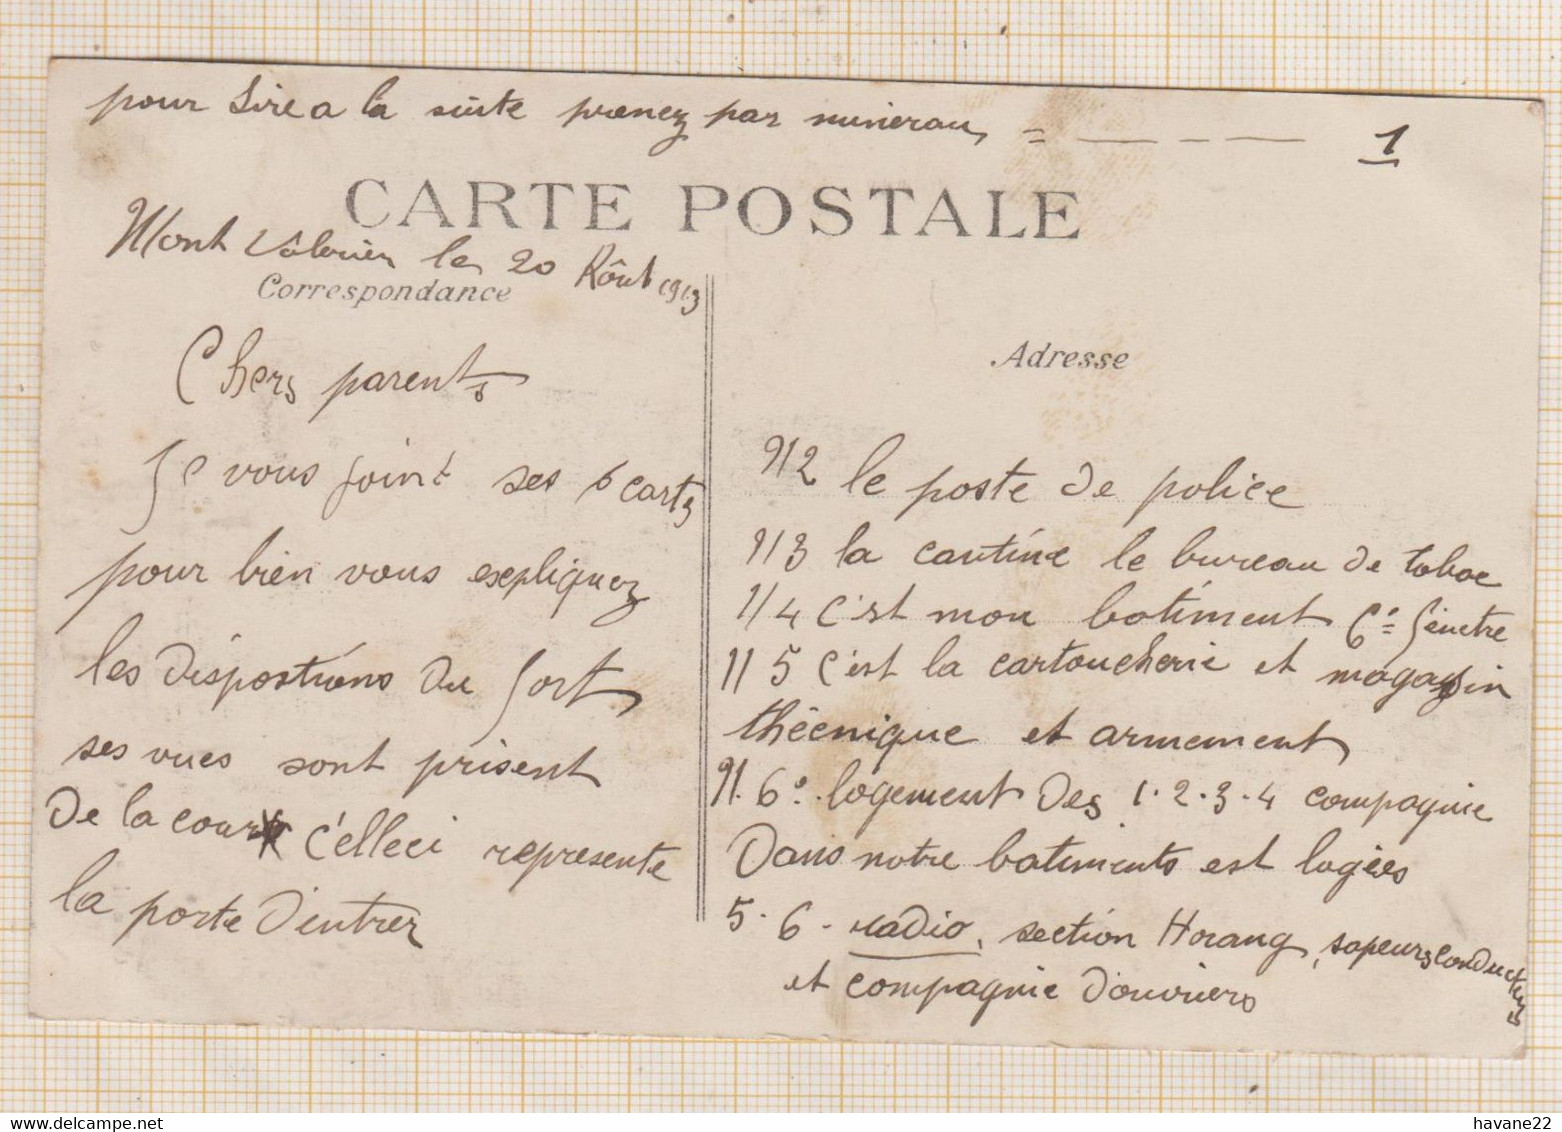 pour Lire a la suite prenez par numerau = — - — 1
CARTE POSTALE
Mont Valerien le 20 Aôut 1913
Correspondance
Adresse
Chers parents
Je vous joint ses 6 carts
pour bien vous expliquez
les dispostions du fort
ses vues sont prisent
De la cour c'elleci represente
la porte D'entrer
912 le poste de police
913 la cantine le bureau de tabac
114 c'est mon batiment
115 c'est la cartoucherie et magasin
théenique et armement
91. 6º. logement Des 1.2.3.4 compagnie
Dans notre batiments est logées
5. 6 - radio, section sapeurs conducteurs
et compagnie D'ouvriers
havane22